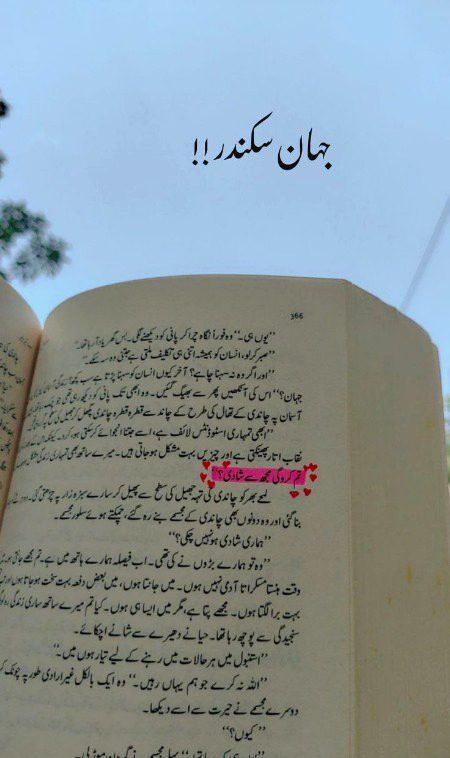 جہان سکندر!!
366
"یوں ہی۔" وہ فوراً نگاہ چرا کر پانی کو دیکھنے لگی۔ اس گھر یاد آ رہا تھا۔
"صبر کرلو، انسان کو ہمیشہ اتنی ہی تکلیف ملتی ہے جتنی وہ سہہ سکے۔"
"اور اگر وہ نہ سہنا چاہے؟ آخر کیوں انسان کو سہنا پڑتا ہے سب
جہان؟" اس کی آنکھیں پھر سے بھیگ گئیں۔ وہ ابھی تک پانی کو دیکھ رہی تھی
آسمان پہ چاندی کے تھال کی طرح کے چاند سے قطرہ قطرہ چاندی پگھل کر جھیل کی
"ابھی تمہاری اسٹوڈنٹس لائف ہے، اسے جتنا انجوائے کر سکتی ہو، کرو۔
نقاب اتار پھینکتی ہے اور چیزیں بہت مشکل ہو جاتی ہیں۔ میرے ساتھ بھی تمہاری زندگی
تم کرو گی مجھ سے شادی؟"
لمحے بھر کو چاندی کی تہہ جھیل کی سطح سے پھیل کر سارے سبزہ زار پہ چڑھتی گئی۔
بنا گئی اور وہ دونوں بھی چاندی کے مجسمے بنے رہ گئے، چمکتے ہوئے سلور مجسمے۔
"ہماری شادی ہو نہیں چکی؟"
"وہ تو ہمارے بڑوں نے کی تھی۔ اب فیصلہ ہمارے ہاتھ میں ہے۔ تم مجھے جانتی ہو۔
وقت ہنستا مسکراتا آدمی نہیں ہوں۔ میں جانتا ہوں، میں بعض دفعہ بہت سخت ہو جاتا ہوں اور
بہت برا لگتا ہوں۔ مجھے پتا ہے، مگر میں ایسا ہی ہوں۔ کیا تم میرے ساتھ ساری زندگی رہ لو
سنجیدگی سے پوچھ رہا تھا۔ حیا نے دھیرے سے شانے اچکائے۔
"استنبول میں ہر حالات میں رہنے کے لیے تیار ہوں میں۔"
"اللہ نہ کرے جو ہم یہاں رہیں۔" وہ ایک بالکل غیر ارادی طور پہ چونک
دوسرے مجسمے نے حیرت سے اسے دیکھا۔
"کیوں؟"